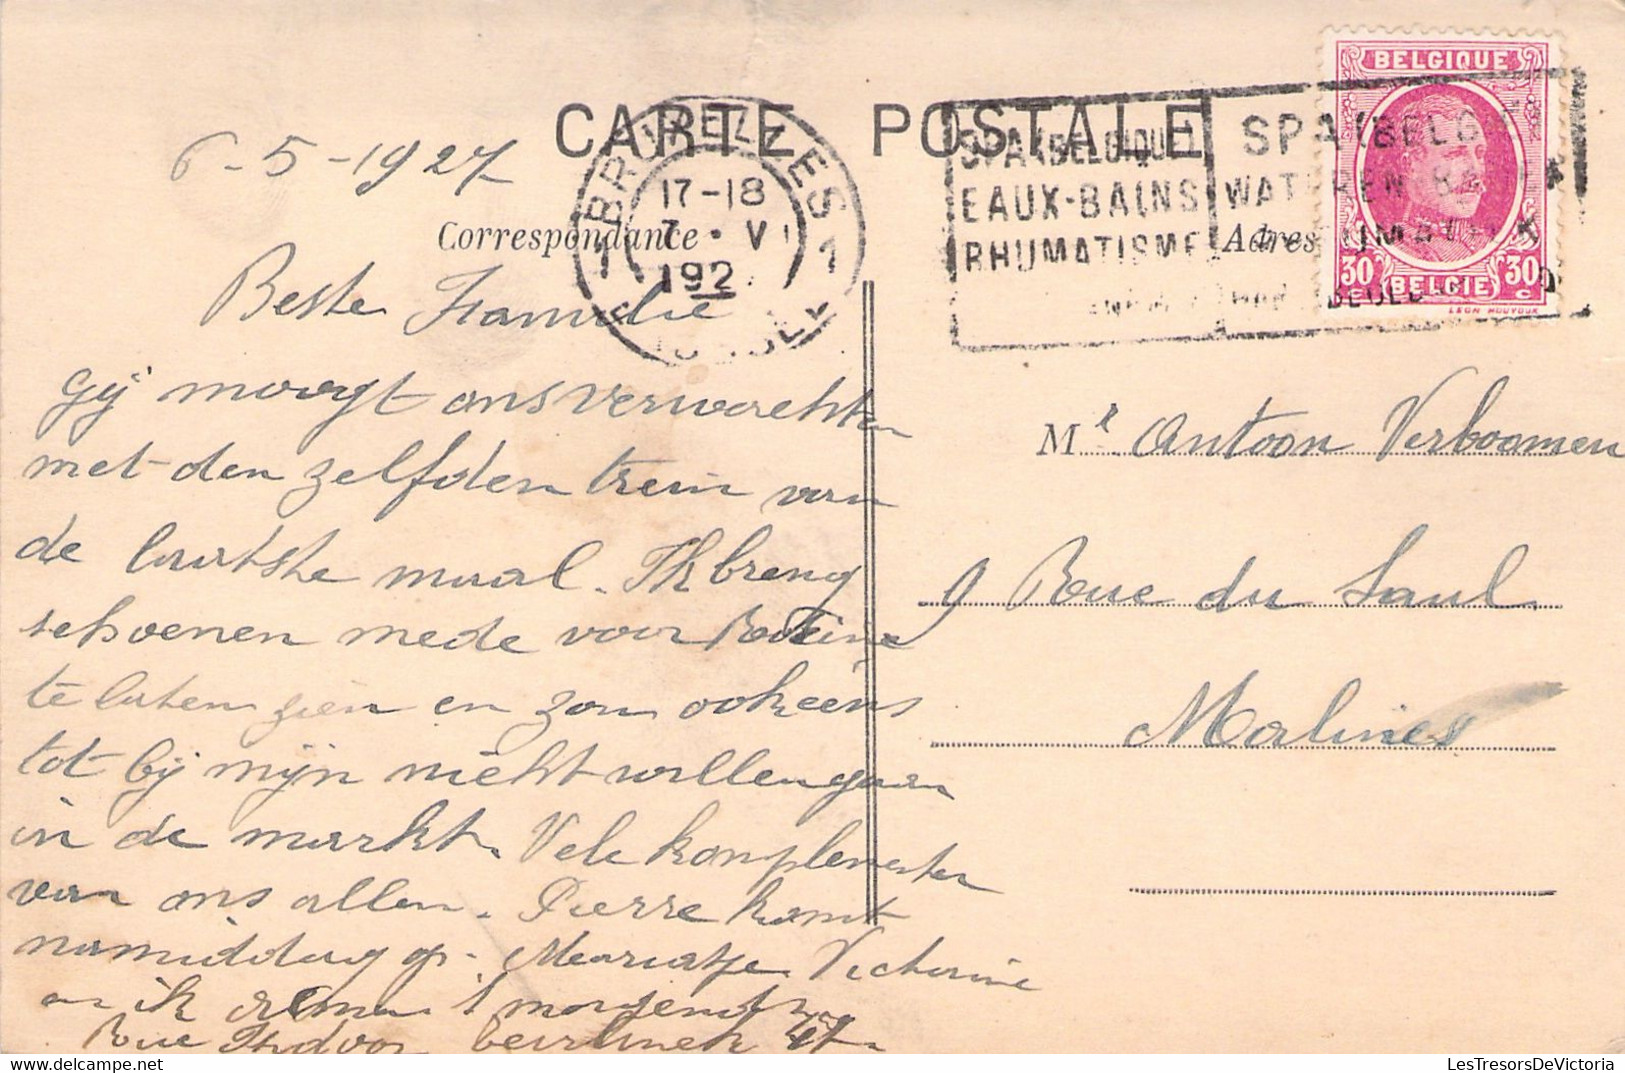 CARTE POSTALE
6-5-1927
Correspondance
Adres
BRUXELLES
17-18
7 · V
192
1 1
BRUSSEL
SPA (BELGIQUE)
EAUX-BAINS
RHUMATISME
SPA (BELG
WATEREN BA
BELGIQUE
30 c BELGIE 30 c
LEON HOUYOUX
Beste Familie
Gij moogt ons verwachten
met den zelfden trein van
de laatste maal. Ik breng
schoenen mede voor
te laten zien en zou ookeens
tot bij mijn nicht willen gaan
in de markt. Vele komplementen
van ons allen. Pierre komt
namiddag op. Mariatje Victorine
en ik komen 's morgens
Rue
Mr Antoon Verboomen
9 Rue du Saul
Malines
LesTresorsDeVictoria.com
delcampe.net